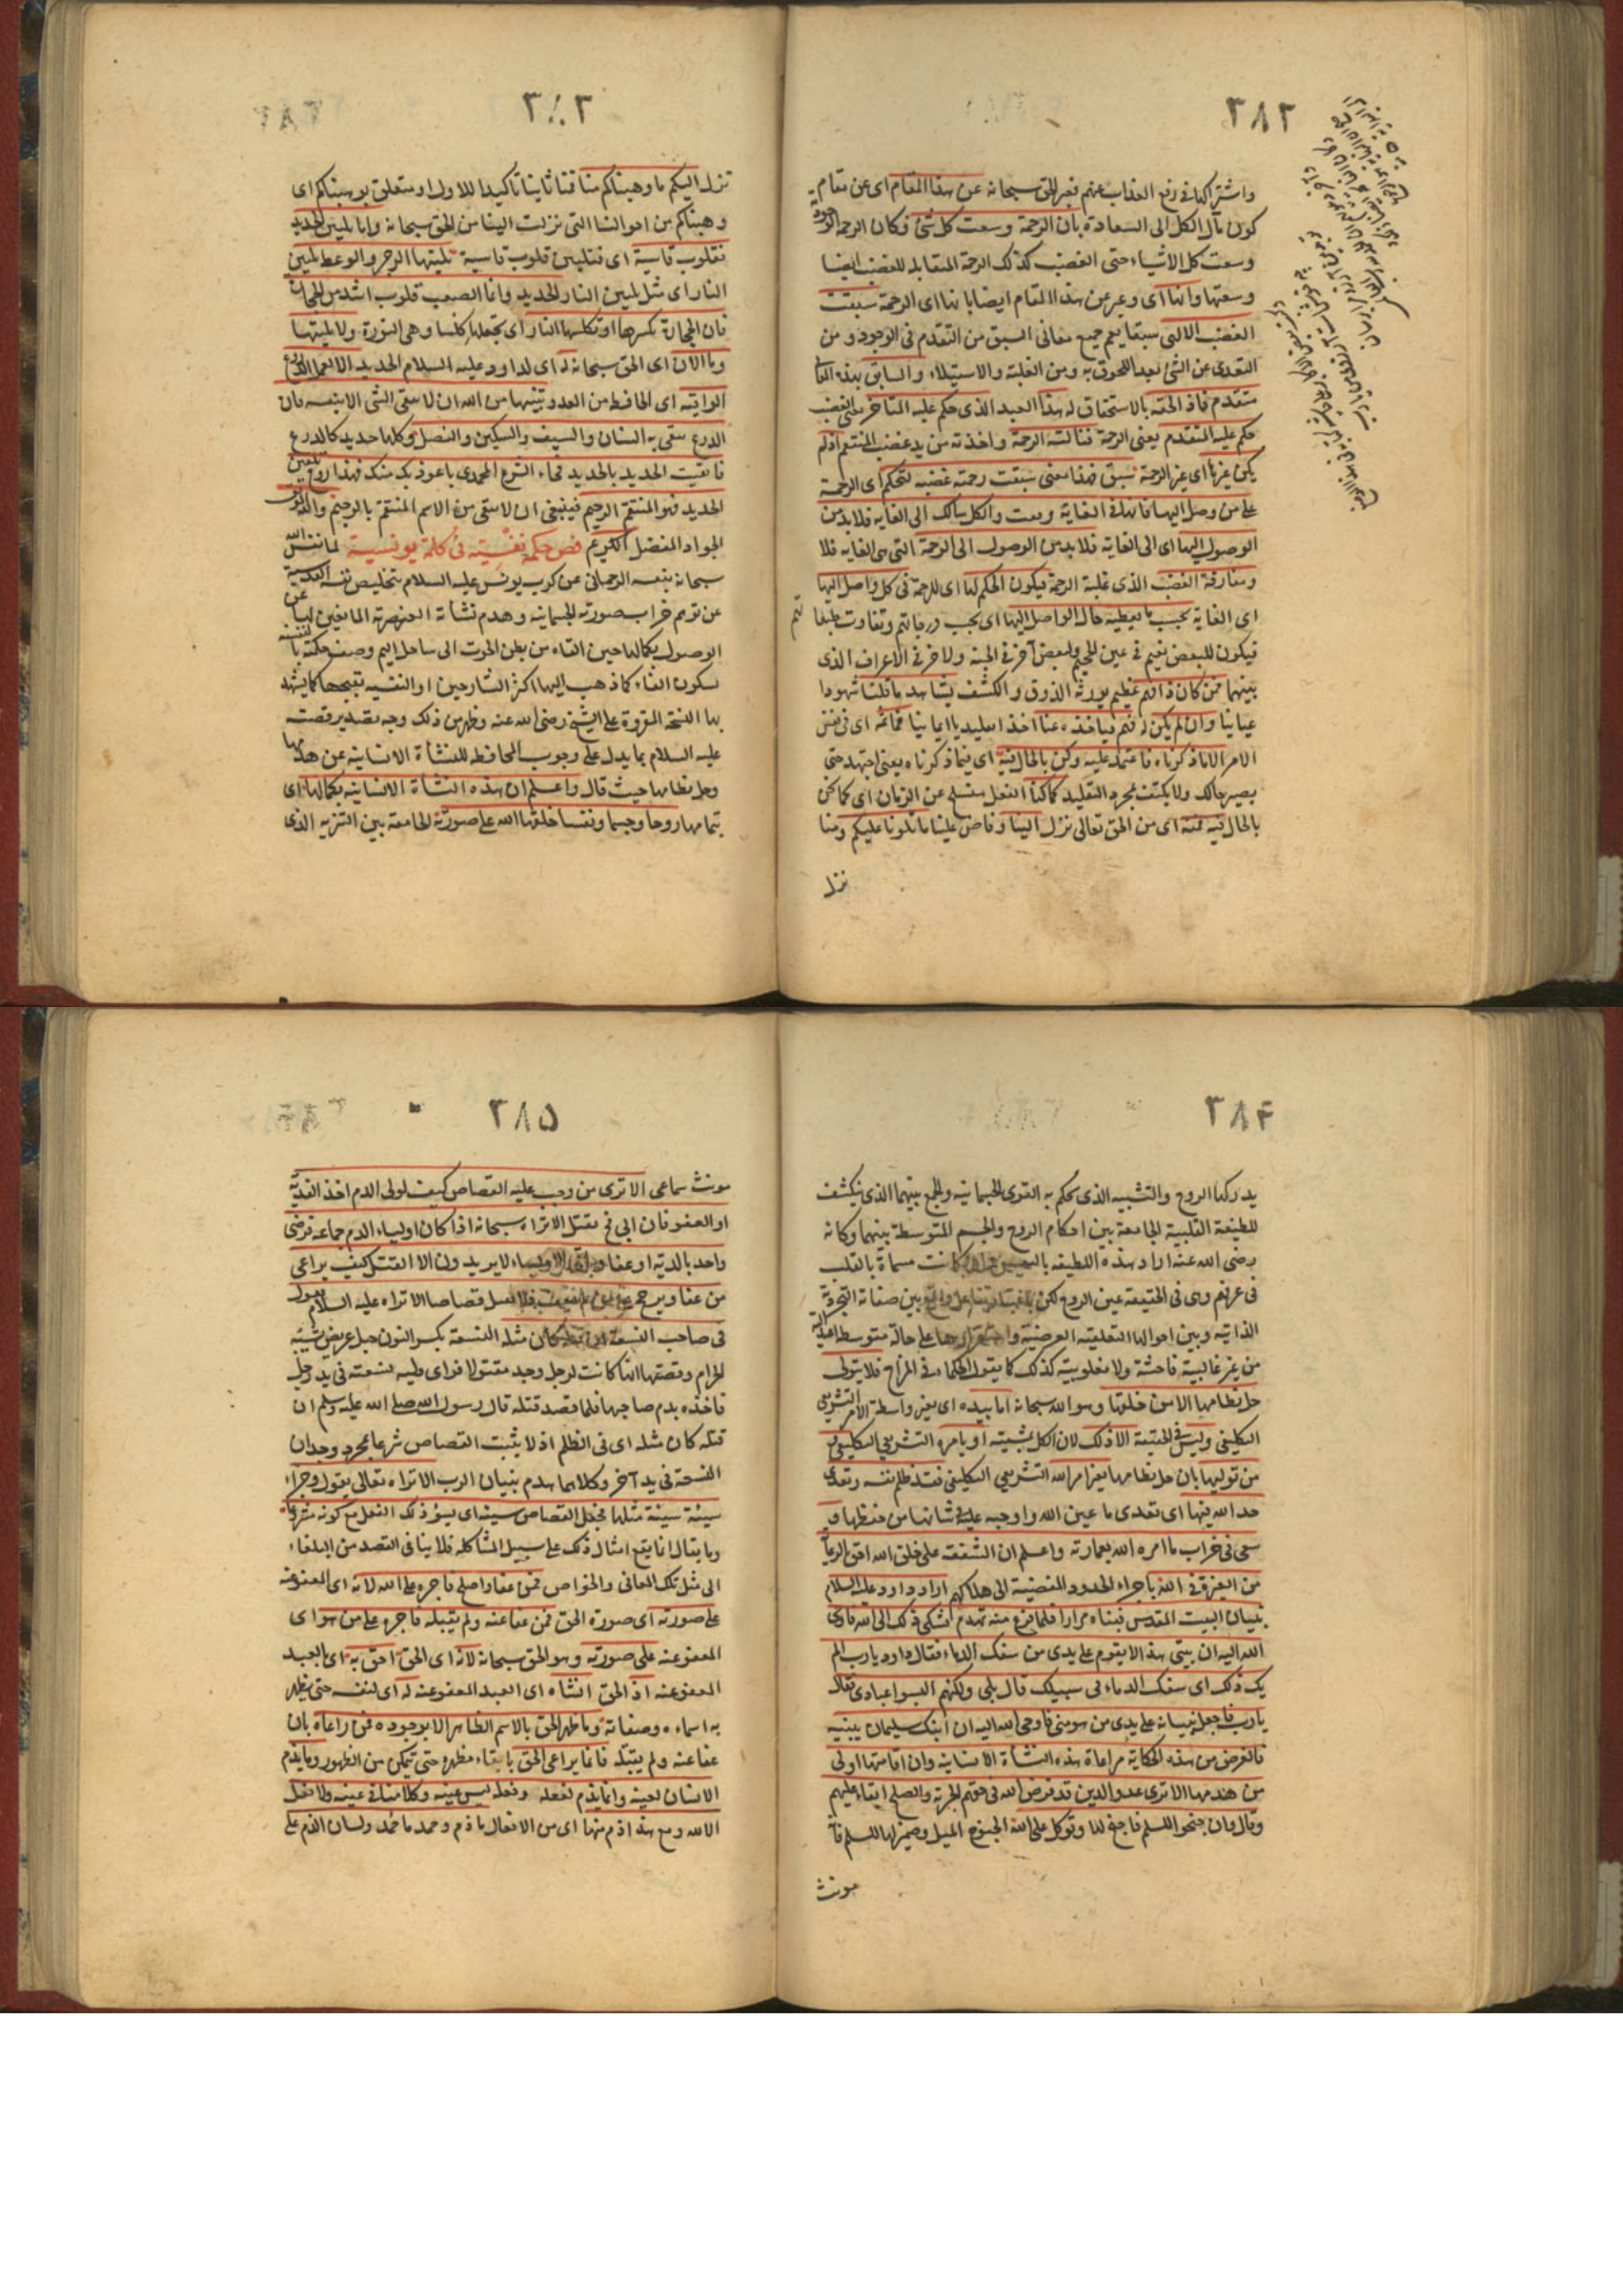 ٣٨٢
واشتراكها في رفع العذاب عنهم فعبر الحق سبحانه عن هذا المقام اى عن مقام
كون مآل الكل الى السعادة بان الرحمة وسعت كل شئ فكان الرحمة
وسعت كل الاشياء حتى الغضب كذلك الرحمة المقابلة للغضب ايضا
وسعتها وانها اى وعبر عن هذا المقام ايضا بانها اى الرحمة سبقت
الغضب الالهى سبقا يعم جميع معانى السبق من التقدم فى الوجود ومن
التعدى عن الشئ بعد اللحوق به ومن الغلبة والاستيلاء والسابق بهذه
متقدم فاذا لحقه بالاستحقاق له هذا العبد الذى حكم عليه المتأخر يعنى الغضب
حكم عليه المتقدم يعنى الرحمة فنالته الرحمة واخذته من يد غضب المنتقم اذ لم
يكن غيرها اى غير الرحمة سبق فهذا معنى سبقت رحمته غضبه لتحكم اى الرحمة
على من وصل اليها فانها فى الغاية وقفت والكل سالك الى الغاية فلا بد من
الوصول اليها اى الى الغاية فلا بد من الوصول الى الرحمة التى هى الغاية فلا
ومفارقة الغضب الذى غلبة الرحمة فيكون الحكم لها اى للرحمة فى كل واصل اليها
اى الغاية بحسب ما يعطيه حال الواصل اليها اى بحسب درجاتهم وتفاوت طبقاتهم
فيكون للبعض نعيم فى عين الجحيم ولبعض آخر فى الجنة ولآخر فى الاعراف الذى
بينهما فمن كان ذا فهم عظيم يورثه الذوق والكشف يشاهد ما قلنا شهودا
عيانيا وان لم يكن له فهم فيأخذه عنا اخذا تقليديا ايمانيا فما ثمه اى فى نفس
الامر الا ما ذكرناه فاعتمد عليه وكن بالحال فيه اى فيما ذكرناه يعنى اجتهد حتى
يصير حالك ولا يكتف بمجرد التقليد كما كنا الفعل منسلخ عن الزمان اى كما كن
بالحال فيه فمنه اى من الحق تعالى نزل الينا وفاض علينا ما تلونا عليكم ومنا
نزل
٣٨٣
نزل اليكم ما وهبناكم منا فمنا ثانيا تأكيدا للاول او متعلق بوهبناكم اى
وهبناكم من احوالنا التى نزلت الينا من الحق سبحانه واما تليين الحديد
فقلوب قاسية اى فتليين قلوب قاسية تليينها الزجر والوعظ تليين
النار اى مثل تليين النار الحديد وانما الصعب قلوب اشد من الحجارة
فان الحجارة تكسرها او تكلسها النار اى تجعلها كلسا وهى النورة ولا تلينها
وما الان اى الحق سبحانه له اى لداود عليه السلام الحديد الا لعمل الدروع
الواقية اى الحافظ من العدو تنبيها من الله ان لا يتقى الشئ الا بنفسه فان
الدرع يتقى به السنان والسيف والسكين والنصل وكلها حديد كالدرع
فاتقيت الحديد بالحديد فجاء الشرع المحمدى باعوذ بك منك فهذا روح تليين
الحديد فهو المنتقم الرحيم فينبغى ان لا يتقى من الاسم المنتقم بالرحيم والله الموفق
الجواد المفضل الكريم فص حكمة نفسية فى كلمة يونسية لما نفس الله
سبحانه بنفسه الرحمانى عن كرب يونس عليه السلام بتخليص نفسه القدسية
عن توهم خراب صورته الجسمانية وهدم نشاته العنصرية المانعين لها عن
الوصول بكمالها حين القاه من بطن الحوت الى ساحل اليم وصف حكمته بالنفسية
بسكون الفاء كما ذهب اليها اكثر الشارحين او النفسية بفتحها كما يشهد
بها النسخة المقروة على الشيخ رضى الله عنه وظهر من ذلك وجه تصدير قصته
عليه السلام بما يدل على وجوب المحافظة للنشأة الانسانية عن هدمها
وحل نظامها حيث قال واعلم ان هذه النشأة الانسانية بكمالها اى
بتمامها روحا وجسما ونفسا خلقها الله على صورته الجامعة بين التنزيه الذى
٣٨٤
يدركها الروح والتشبيه الذى يحكم به القوى الجسمانية والجمع بينهما الذى ينكشف
للطيفة القلبية الجامعة بين احكام الروح والجسم المتوسطة بينهما وكانه
رضى الله عنه اراد بهذه اللطيفة بالنفس كانت مسماة بالقلب
فى عرفهم وهى فى الحقيقة عين الروح لكن بين صفاته التجردية
الذاتية وبين احوالها التعلقية العرضية واستقرارها على حالة متوسطة
من غير غالبية فاحشة ولا مغلوبية كذلك كما يقول الحكماء فى المزاج فلا يتولى
حل نظامها الا من خلقها وهو الله سبحانه اما بيده اى بغير واسطة الامر التشريعى
التكليفى وليس فى الحقيقة الا ذلك لان الكل بمشيته او بامره التشريعى التكليفى و
من توليها بان حل نظامها بغير امر الله التشريعى التكليفى فقد ظلم نفسه وتعدى
حد الله فيها اى تعدى ما عين الله واوجبه عليه فى شانها من حفظها و
سعى فى خراب ما امره الله بعمارته واعلم ان الشفقة على خلق الله احق بالرعاية
من الغيرة فى الله باجراء الحدود المفضية الى هلاكهم اراد داود عليه السلام
بنيان البيت المقدس فبناه مرارا فلما فرغ منه تهدم فشكى ذلك الى الله فاوحى
الله اليه ان بيتى هذا لا يقوم على يدى من سفك الدماء فقال داود يا رب الم
يك ذلك اى سفك الدماء فى سبيلك قال بلى ولكنهم اليسوا عبادى فقال
يا رب فاجعل بنيانه على يدى من هو منى فاوحى الله اليه ان ابنك سليمان يبنيه
فالغرض من هذه الحكاية مراعاة هذه النشأة الانسانية وان اقامتها اولى
من هدمها الا ترى عدو الدين قد فرض الله فى حقهم الجزية والصلح ابقاء عليهم
وقال وان جنحوا للسلم فاجنح لها وتوكل على الله الجنوح الميل وضمير لها للسلم فانه
مونث
٣٨٥
مونث سماعى الا ترى من وجب عليه القصاص كيف لولى الدم اخذ الفدية
او العفو فان ابى فح يقتل الا تراه سبحانه اذا كان اولياء الدم جماعة فرضى
واحد بالدية او عفا وباقى الاولياء لا يريدون الا القتل كيف يراعى
من عفا ويرجح على من لم يعف فلا يقتل قصاصا الا تراه عليه السلام يقول
فى صاحب النسعة ان قتله كان مثله النسعة بكسر النون حبل عريض يشبه
الحزام وقصتها انها كانت لرجل وجد مقتولا فراى وليه نسعته فى يد رجل
فاخذه بدم صاحبها فلما قصد قتله قال رسول الله صلى الله عليه وسلم ان
قتله كان مثله اى فى الظلم اذ لا يثبت القصاص شرعا بمجرد وجدان
النسعة فى يد آخر وكلاهما هدم بنيان الرب الا تراه تعالى يقول وجزاء
سيئة سيئة مثلها فجعل القصاص سيئة اى يسوء ذلك الفعل مع كونه مشروعا
وما يقال انما يقع امثال ذلك على سبيل المشاكلة فلا ينافى القصد من البلغاء
الى مثل تلك المعانى والخواص فمن عفا واصلح فاجره على الله لانه اى المعفو عنه
على صورته اى صورة الحق فمن عفا عنه ولم يقتله فاجره على من هو اى
المعفو عنه على صورته وهو الحق سبحانه لانه اى الحق احق به اى بالعبد
المعفو عنه اذ الحق انشاه اى العبد المعفو عنه له اى لنفسه حتى يظهر
به اسماءه وصفاته وما ظهر الحق بالاسم الظاهر الا بوجوده فمن راعاه بان
عفا عنه ولم يقتله فانما يراعى الحق بابقاء مظهره حتى يتمكن من الظهور وما يذم
الانسان لعينه وانما يذم لفعله وفعله ليس عينه وكلامنا فى عينه ولا فعل
الا لله ومع هذا ذم منها اى من الافعال ما ذم وحمد ما حمد ولسان الذم على